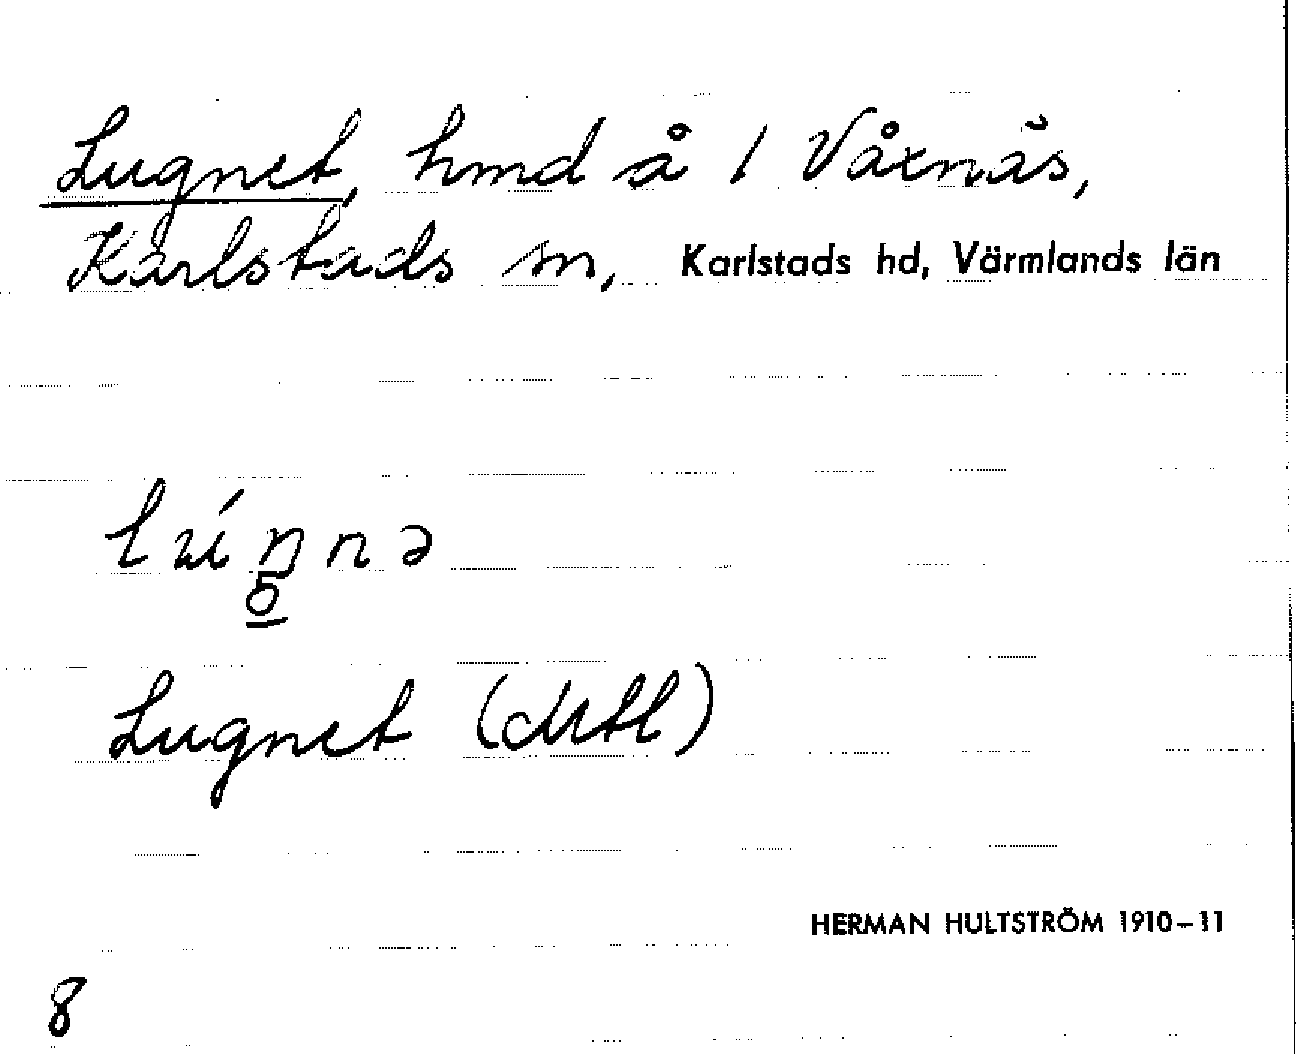 Lugnet, hmd å 1 Våxnäs,
Karlstads sn, Karlstads hd, Värmlands län
lúŋnə
5
Lugnet (Mtl)
HERMAN HULTSTRÖM 1910-11
8